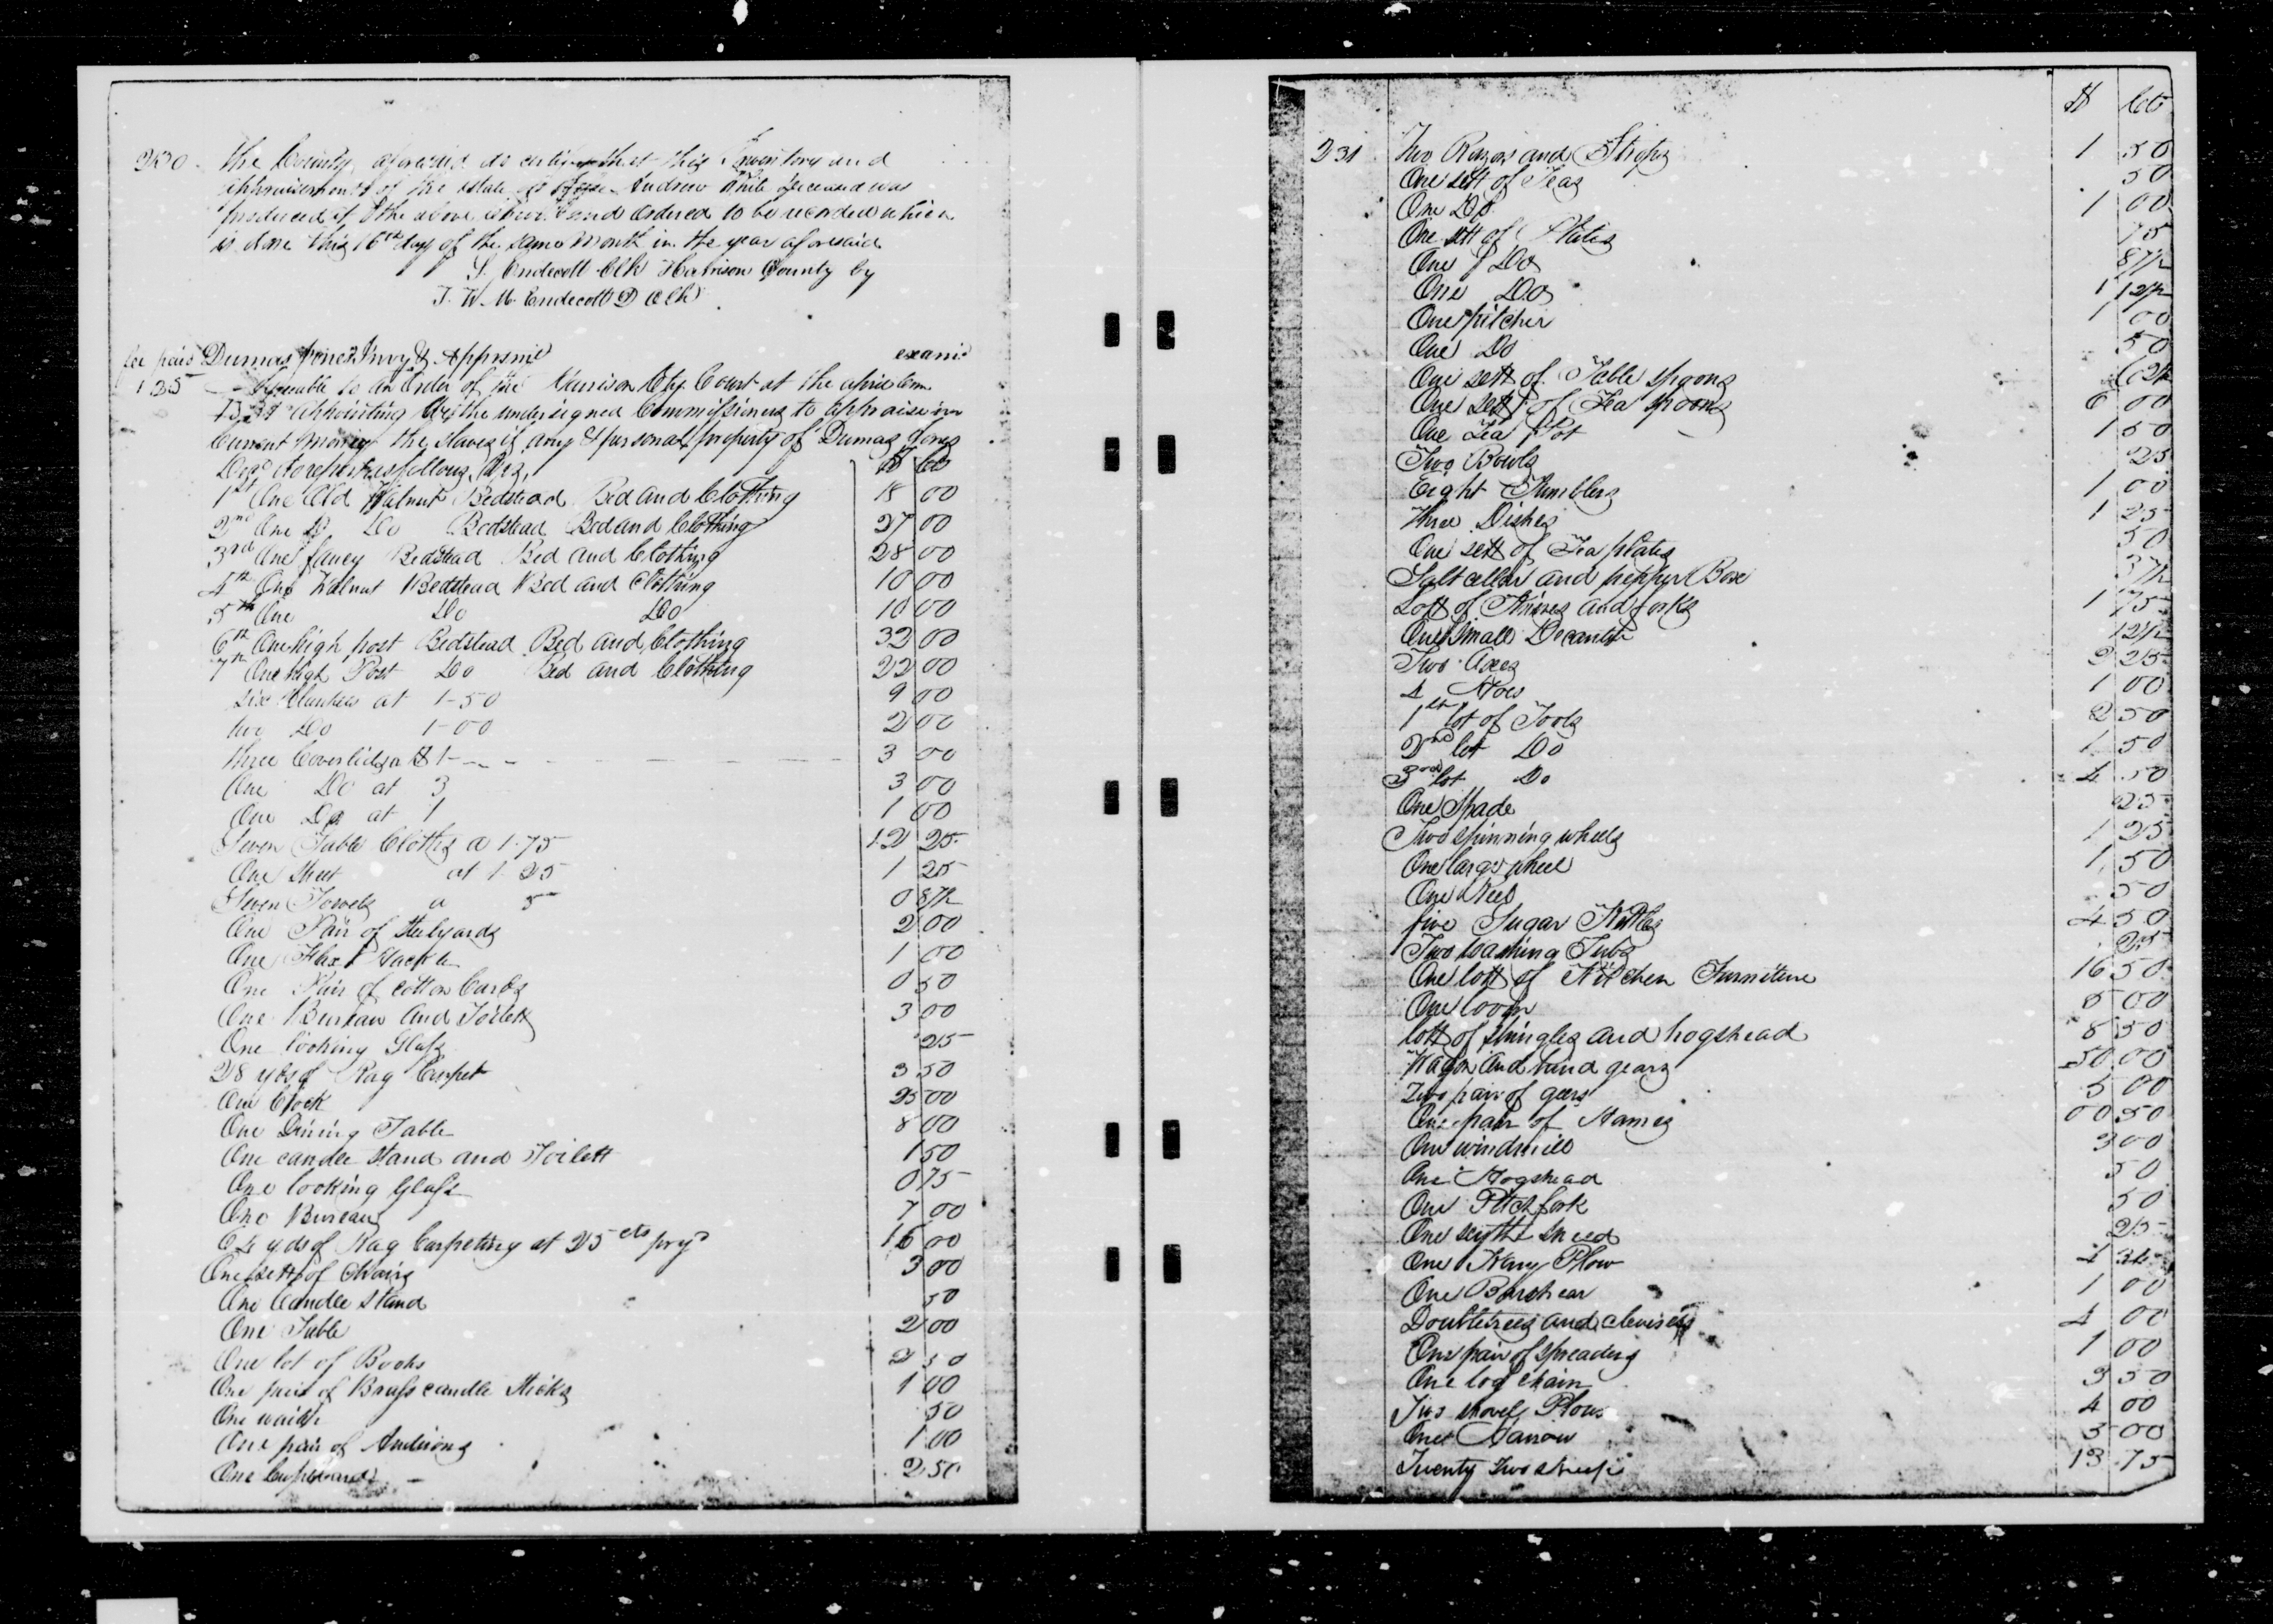 230. The County aforesaid do certify that this Inventory and
appraisement of the estate of Andrew White deceased was
produced the above Court and ordered to be recorded which
is done this 16th day of the same month in the year aforesaid
Endecott Clk Harrison County by
J. W. M. Endecott D Clk
fee paid Dumas Jones Invy & Appraismt exami
1 35 Agreeable to an Order of the Harrison Cty Court at the
appointing us the undersigned Commissioners to appraise in
Current money the slaves if any & personal property of Dumas Jones
Decd do report as follows Viz, $ cts
1st One Old Walnut Bedstead Bed and Clothing 18 00
2nd One Do Bedstead Bed and Clothing 27 00
3rd One fancy Bedstead Bed and Clothing 28 00
4th One Walnut Bedstead Bed and Clothing 10 00
5th One Do Do 10 00
6th One high post Bedstead Bed and Clothing 32 00
7th One high Post Do Bed and Clothing 22 00
six Blankets at 1-50 9 00
two Do 1-00 2 00
three Coverlids at $1- 3 00
One Do at 3 3 00
One Do at 1 1 00
Seven Table Cloths a 1.75 12 25
One Sheet at 1 25 1 25
Seven Towels a 0 87½
One Pair of Steelyards 2 00
One Flax Hackle 1 00
One Pair of Cotton Cards 0 50
One Bureau and Toilett 3 00
One looking Glass 25
28 yds of Rag Carpet 3 50
One Clock 25 00
One Dining Table 8 00
One candle Stand and Toilett 1 50
One looking Glass 0 75
One Bureau 7 00
64 yds of Rag Carpeting at 25 cts pr yd 16 00
One sett of Chairs 3 00
One Candle Stand 50
One Table 2 00
One lot of Books 2 50
One pair of Brass candle Sticks 1 00
One waiter 50
One pair of Andirons 1 00
One Cupboard 2 50
$ cts
231 Two Razors and Strops 1 50
One sett of Teas 50
One Do 1 00
One sett of Plates 75
One Do 87½
One Do 1 12½
One pitcher 1 00
One Do 50
One sett of Table spoons 62½
One sett of Tea spoons 6 00
One Tea Pot 1 50
Two Bowls 25
Eight Tumblers 1 00
Three Dishes 1 25
One sett of Tea plates 50
Salt cellar and pepper Box 37½
Lott of Knives and forks 1 75
One Small Decanter 12½
Two Axes 2 25
4 Hoes 1 00
1st lot of Tools 2 50
2nd lot Do 1 50
3rd lot Do 4 50
One Spade 25
Two spinning wheels 1 25
One large wheel 1 50
One Reel 50
five Sugar Kettles 4 50
Two washing Tubs 25
One lott of Kitchen Furniture 16 50
One loom 5 00
lott of shingles and hogshead 8 50
Wagon and hind gears 50 00
Two pair of gears 5 00
One pair of Hames 00 50
One windmill 3 00
One Hogshead 50
One Pitch fork 50
One scythe sneed 25
One Kary Plow 4
One Barshear 1 00
Doubletrees and clevises 4 00
One pair of Spreaders 1 00
One log chain 3 50
Two shovel Plows 4 00
One Harrow 5 00
Twenty two sheep 13 75